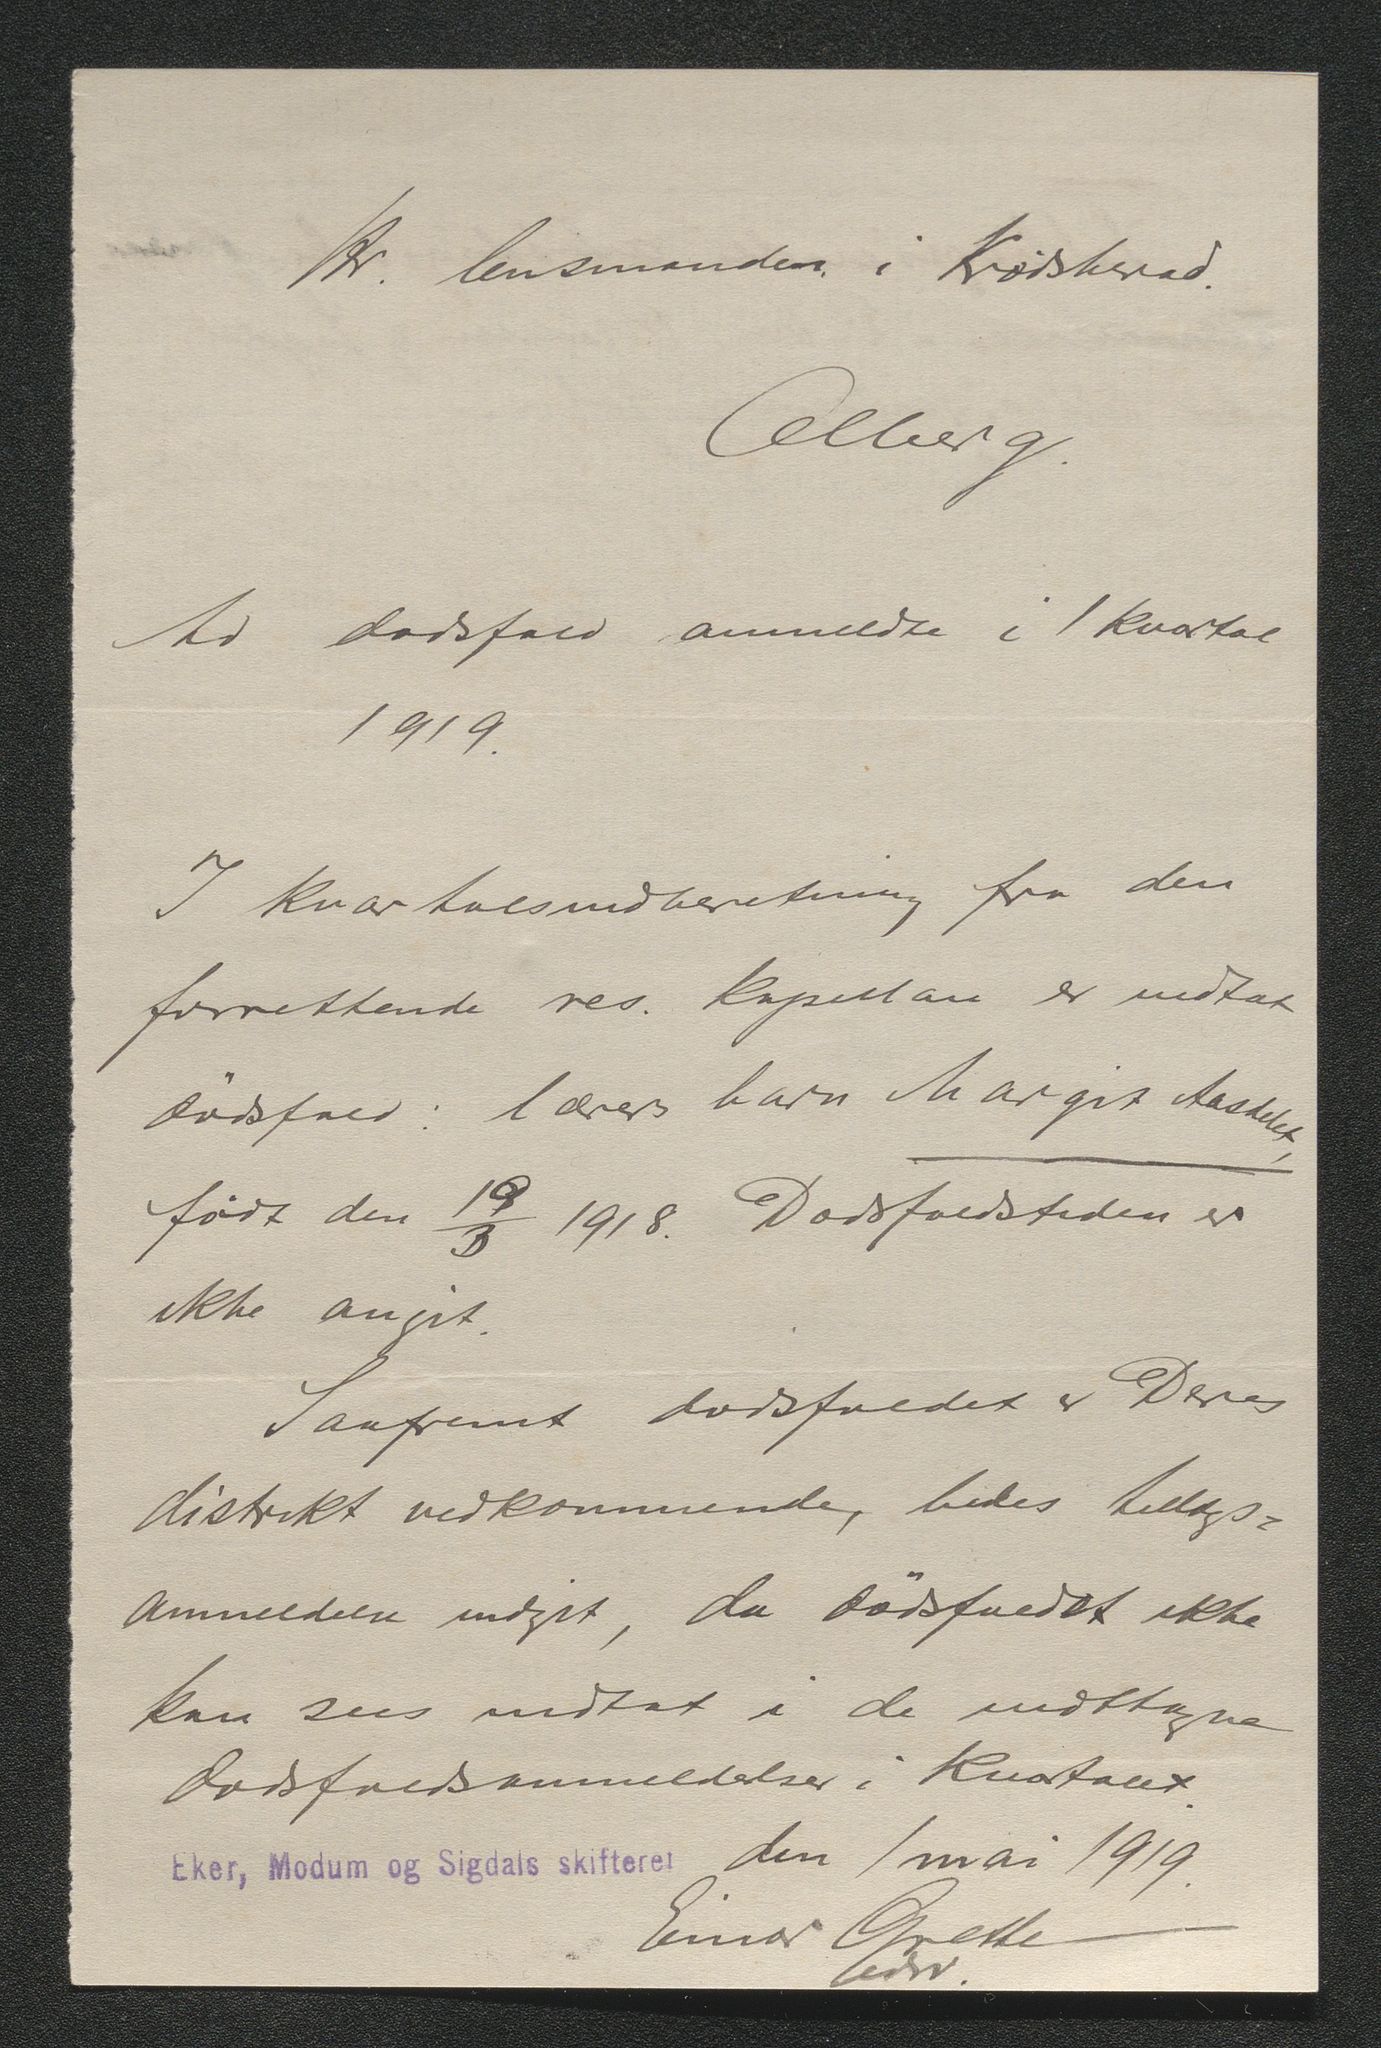 Hr. lensmanden i Krødsherad.
Olberg.
Ad dødsfald anmeldte i 1 kvartal
1919.
I kvartalsindberetning fra den
forrettende res. kapellan er indtat
dödsfald: lærers barn Margit Aasdelet,
födt den 19/3 1918. Dødsfaldstiden er
ikke angit.
Saafremt dødsfaldet er Deres
distrikt vedkommende, bedes tillægs-
anmeldelse indgit, da dödsfaldet ikke
kan sees indtat i de indtagne
dødsfaldsanmeldelser i kvartalet.
Eker, Modum og Sigdals skifteret den 1 mai 1919.
Einar Grette
edsv.